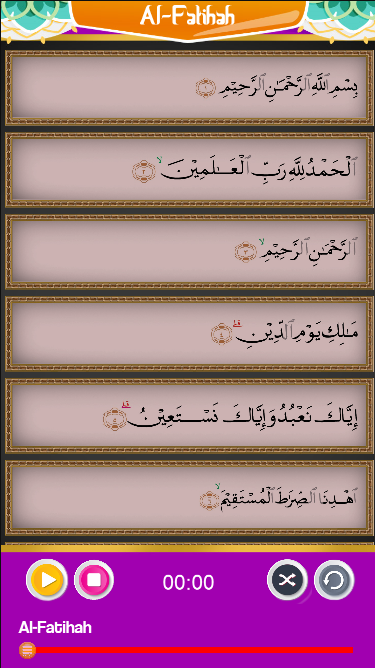 Al-Fatihah
بِسْمِ ٱللَّهِ ٱلرَّحْمَٰنِ ٱلرَّحِيْمِ ١
ٱلْحَمْدُ لِلَّهِ رَبِّ ٱلْعَٰلَمِيْنَ ۙ ٢
ٱلرَّحْمَٰنِ ٱلرَّحِيْمِ ۙ ٣
مَٰلِكِ يَوْمِ ٱلدِّيْنِ ۗ ٤
إِيَّاكَ نَعْبُدُ وَإِيَّاكَ نَسْتَعِيْنُ ۗ ٥
ٱهْدِنَا ٱلصِّرَاطَ ٱلْمُسْتَقِيْمَ ۙ ٦
00:00
Al-Fatihah